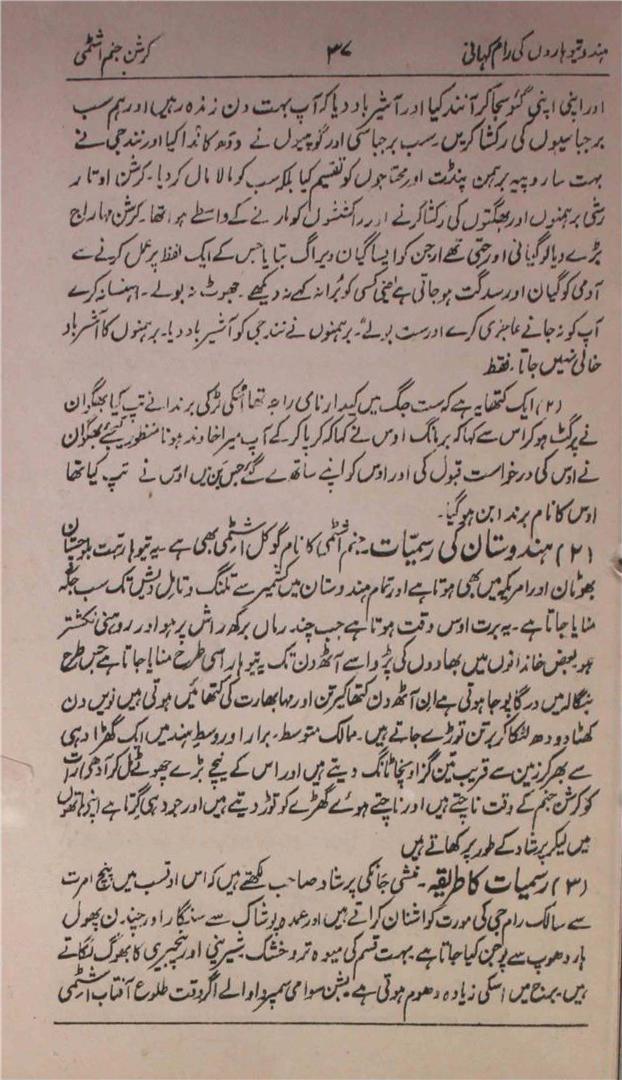 ہندو تیوہاروں کی رام کہانی ۳۷ کرشن جنم اشٹمی
اور اپنی اپنی گئو سجا کر آنند کیا اور آشیرباد دیا کہ آپ بہت دن زندہ رہیں اور ہم سب
برجباسیوں کی رکشا کریں۔ سب برجباسی اور گوپیوں نے دودھ کاندا کیا اور نند جی نے
بہت سا روپیہ برہمن پنڈت اور محتاجوں کو تقسیم کیا بلکہ سب کو مالا مال کر دیا۔ کرشن اوتار
رشی برہمنوں اور بھگتوں کی رکشا کرنے اور راکششوں کو مارنے کے واسطے ہوا تھا۔ کرشن مہاراج
بڑے دیالو گیانی اور جتی تھے ارجن کو ایسا گیان ویراگ بتایا جس کے ایک لفظ پر عمل کرنے سے
آدمی کو گیان اور سدگت ہو جاتی ہے یعنی کسی کو برا نہ کہے نہ دیکھے۔ جھوٹ نہ بولے۔ اہنسا نہ کرے
آپ کو نہ جانے عاجزی کرے اور ست بولے۔ برہمنوں نے نند جی کو آشیرباد دیا۔ برہمنوں کا آشیرباد
خالی نہیں جاتا۔ فقط
(۲) ایک کتھا یہ ہے کہ ست جگ میں کیدار نامی راجہ تھا اُنکی لڑکی برندا نے تپ کیا بھگوان
نے پرگٹ ہو کر اس سے کہا کہ بر مانگ اوس نے کہا کہ کرپا کر کے آپ میرا خاوند ہونا منظور کیجئے بھگوان
نے اوس کی درخواست قبول کی اور اوس کو اپنے ساتھ لے گئے جس بن میں اوس نے تپ کیا تھا
اوس کا نام برندابن ہو گیا۔
(۲) ہندوستان کی رسمیات۔ جنم اشٹمی کا نام گوکل اشٹمی بھی ہے۔ یہ تیوہار تبت بلوچستان
بھوٹان اور امریکہ میں بھی ہوتا ہے اور تمام ہندوستان میں کشمیر سے تلنگ و تامل دیش تک سب جگہ
منایا جاتا ہے۔ یہ برت اوس وقت ہوتا ہے جب چندرماں برکھ راش پر ہو اور روہنی نکشتر
ہو بعض خاندانوں میں بھادوں کی پڑوا سے آٹھ دن تک یہ تیوہار اسی طرح منایا جاتا ہے جس طرح
بنگالہ میں درگا پوجا ہوتی ہے ان آٹھ دن کتھا کیرتن اور مہابھارت کی کتھائیں ہوتی ہیں نویں دن
کھٹا دودھ لٹکا کر برتن توڑے جاتے ہیں۔ ممالک متوسط۔ برار اور وسط ہند میں ایک گھڑا دہی
سے بھر کر زمین سے قریب تین گز اونچا ٹانگ دیتے ہیں اور اس کے نیچے بڑے چھوٹے مل کر آدھی رات
کو کرشن جنم کے وقت ناچتے ہیں اور ناچتے ہوئے گھڑے کو توڑ دیتے ہیں اور جو دہی گرتا ہے اپنے ہاتھوں
میں لیکر پرشاد کے طور پر کھاتے ہیں
(۳) رسمیات کا طریقہ۔ منشی جانکی پرشاد صاحب لکھتے ہیں کہ اس اوتسب میں پنچ امرت
سے سالک رام جی کی مورت کو اشنان کراتے ہیں اور عمدہ پوشاک سے سنگار اور چندن پھول
ہار دھوپ سے پوجن کیا جاتا ہے بہت قسم کی میوہ تر و خشک شیرینی اور پنجیری کا بھوگ لگاتے
ہیں۔ برج میں اسکی زیادہ دھوم ہوتی ہے بشن سوامی سمپردا والے اگر وقت طلوع آفتاب اشٹمی